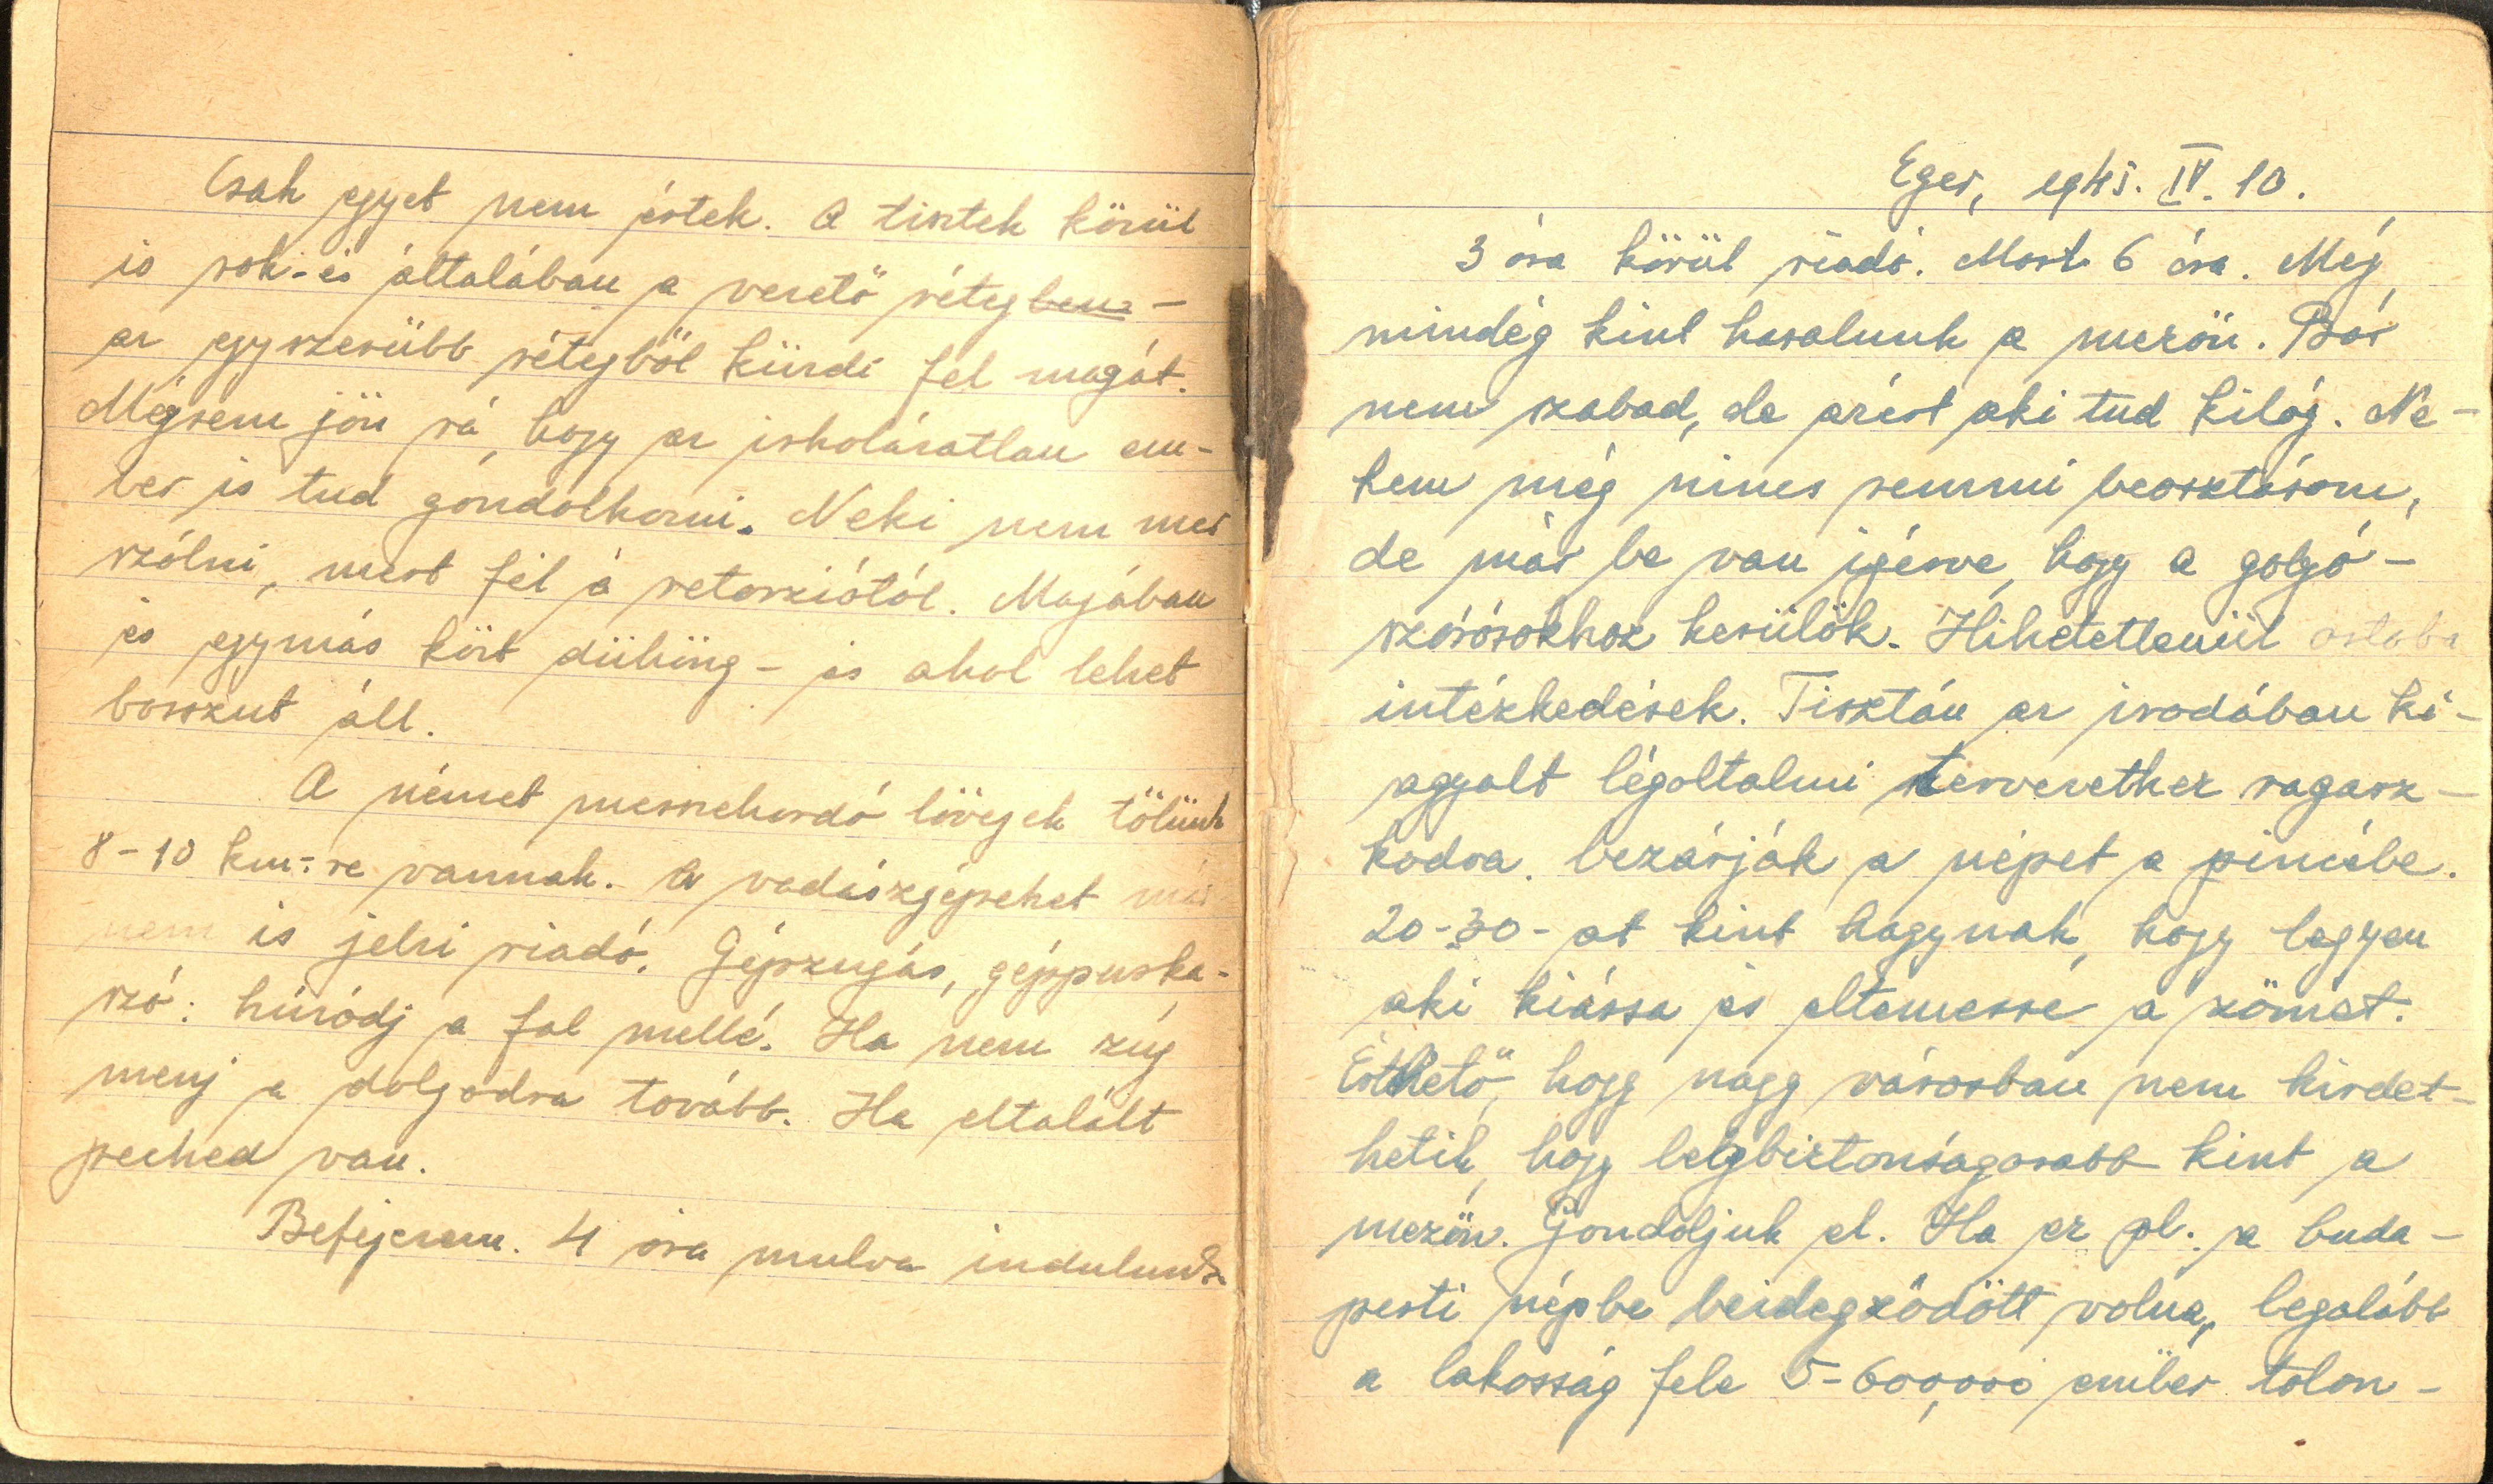 Csak egyet nem értek. A tisztek közül
is sok - és általában a vezető rétegben -
az egyszerübb rétegből küzdi fel magát.
Mégsem jön rá, hogy az iskolázatlan em-
ber is tud gondolkozni. Neki nem mer
szólni, mert fél a retorziótól. Magában
és egymás közt dühöng - és ahol lehet
bosszut áll.
A német messzehordó lövegek tőlünk
8-10 km-re vannak. A vadászgépeket már
nem is jelzi riadó. Gépzugás, géppuska-
szó: húzódj a fal mellé. Ha nem zúg
menj a dolgodra tovább. Ha eltalált
peched van.
Befejezem. 4 óra mulva indulunk.
Eger, 1945. IV. 10.
3 óra körül riadó. Most 6 óra. Még
mindég kint hasalunk a mezőn. Bár
nem szabad, de azért aki tud kilóg. Ne-
kem még nincs semmi beosztásom,
de már be van igérve, hogy a golyó-
szórósokhoz kerülök. Hihetetlenül ostoba
intézkedések. Tisztán az irodában ki-
agyalt légoltalmi tervezethez ragasz-
kodva bezárják a népet a pincébe.
20-30-at kint hagynak, hogy legyen
aki kiássa és eltemesse a zömét.
Érthető, hogy nagy városban nem hirdet-
hetik, hogy legbiztonságosabb kint a
mezőn. Gondoljuk el. Ha ez pl. a buda-
pesti népbe beidegződött volna, legalább
a lakosság fele 5-600,000 ember tolon-